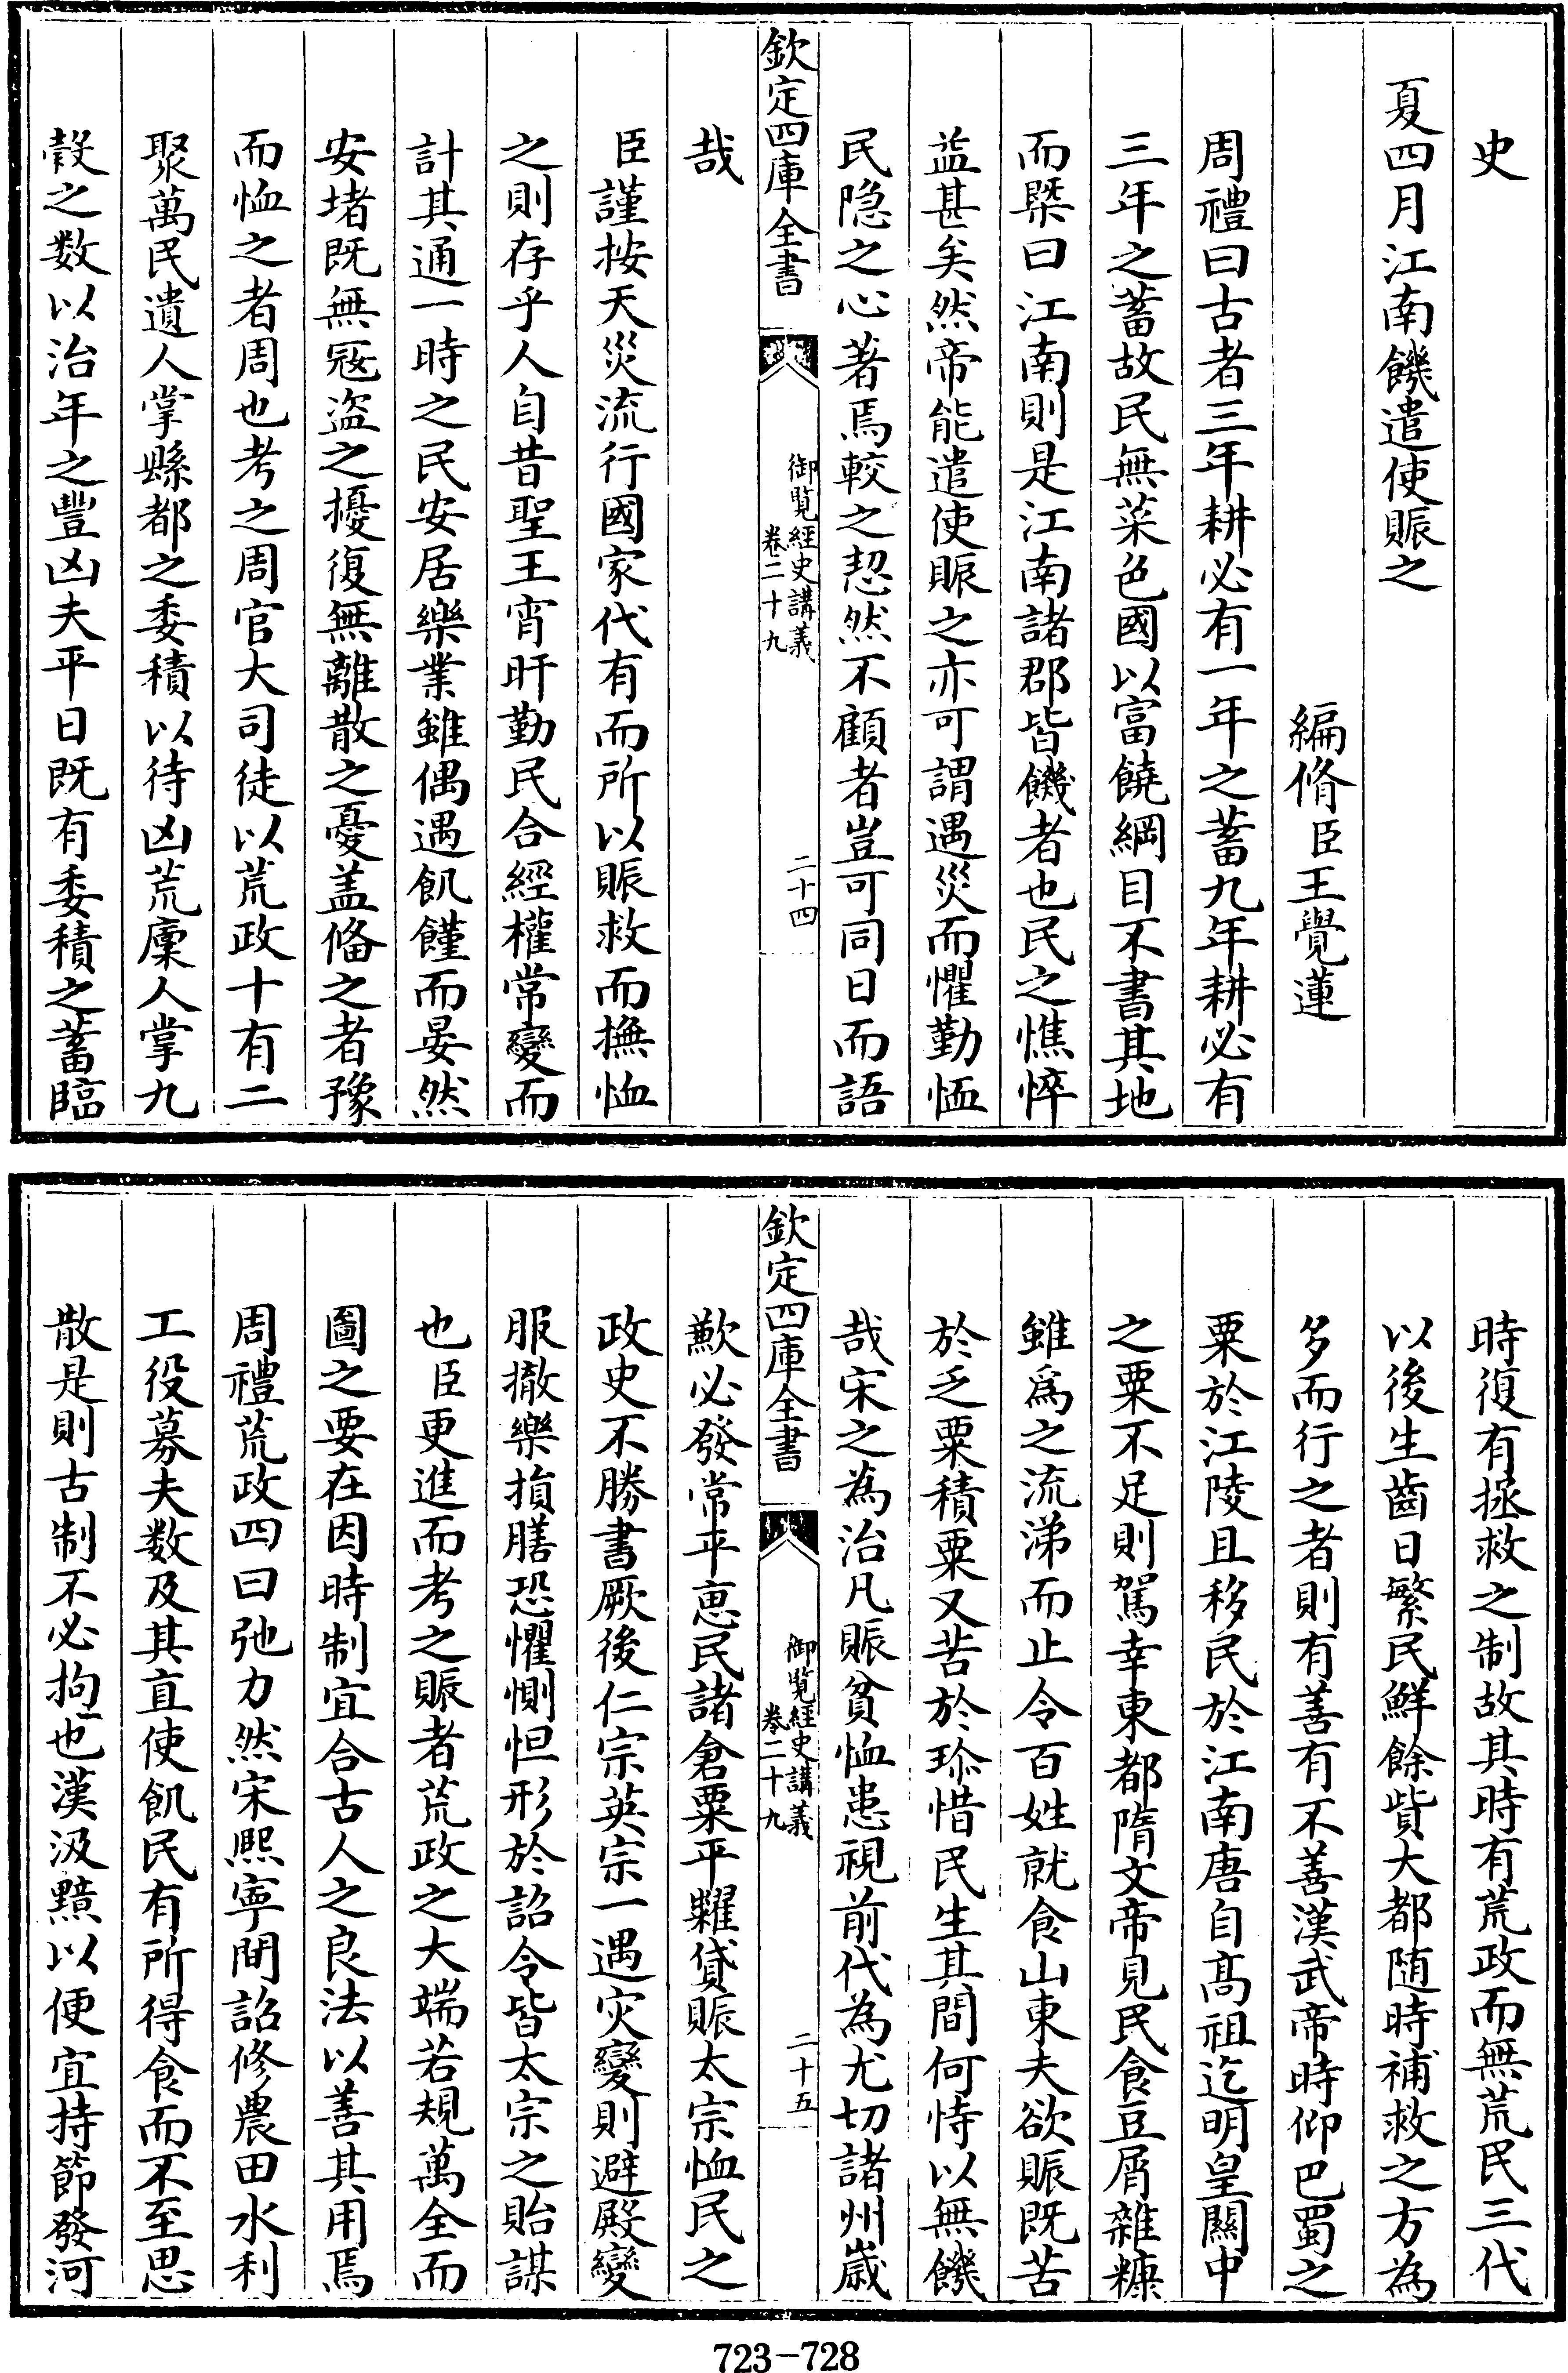 史
夏四月江南饑遣使賑之
編脩臣王覺蓮
周禮曰古者三年耕必有一年之蓄九年耕必有
三年之蓄故民無菜色國以富饒綱目不書其地
而槩曰江南則是江南諸郡皆饑者也民之憔悴
益甚矣然帝能遣使賑之亦可謂遇災而懼勤恤
民隐之心著焉較之恝然不顧者豈可同日而語
欽定四庫全書
御覧經史講義
卷二十九
二十四
哉
臣謹按天災流行國家代有而所以賑救而撫恤
之則存乎人自昔聖王宵旰勤民合經權常變而
計其通一時之民安居樂業雖偶遇飢饉而晏然
安堵既無冦盗之擾復無離散之憂盖備之者豫
而恤之者周也考之周官大司徒以荒政十有二
聚萬民遺人掌縣都之委積以待凶荒廩人掌九
穀之数以治年之豐凶夫平日既有委積之蓄臨
時復有拯救之制故其時有荒政而無荒民三代
以後生齒日繁民鮮餘貲大都随時補救之方為
多而行之者則有善有不善漢武帝時仰巴蜀之
粟於江陵且移民於江南唐自髙祖迄明皇關中
之粟不足則駕幸東都隋文帝見民食豆屑雜糠
雖爲之流涕而止令百姓就食山東夫欲賑既苦
於乏粟積粟又苦於珎惜民生其間何恃以無饑
哉宋之為治凡賑貧恤患視前代為尤切諸州嵗
欽定四庫全書
御覧經史講義
卷二十九
二十五
歉必發常平恵民諸倉粟平糶貸賑太宗恤民之
政史不勝書厥後仁宗英宗一遇灾變則避殿變
服撤樂損膳恐懼惻怛形於詔令皆太宗之貽謀
也臣更進而考之賑者荒政之大端若規萬全而
圖之要在因時制宜合古人之良法以善其用焉
周禮荒政四曰弛力然宋熈寜間詔修農田水利
工役募夫数及其直使飢民有所得食而不至思
散是則古制不必拘也漢汲黯以便宜持節發河
723-728